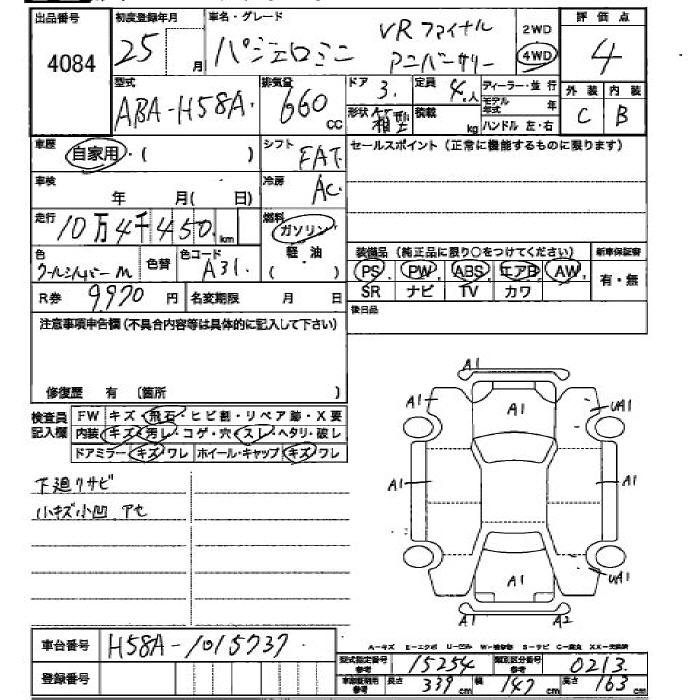 出品番号 初度登録年月 車名・グレード 評価点
4084 25 月 パジェロミニ VR ファイナル アニバーサリー 2WD 4WD 4
型式 排気量 ドア 定員 ディーラー・並行 外装 内装
ABA-H58A 660 cc 3. 4.人 モデル年式 年 C B
形状 箱型 積載 kg ハンドル 左・右
車歴 自家用・( ) シフト FAT セールスポイント (正常に機能するものに限ります)
車検 年 月( 日) 冷房 AC
走行 10万4千450 km 燃料 ガソリン 軽油 ( )
色 クールシルバーM 色替 色コード A31. 装備品 (純正品に限り○をつけてください) 新車保証書
PS PW ABS エアB AW 有・無
R券 9970 円 名変期限 月 日 SR ナビ TV カワ
注意事項申告欄 (不具合内容等は具体的に記入して下さい) 後日品
修復歴 有 (箇所 )
検査員記入欄 FW キズ・飛石・ヒビ割・リペア跡・X要
内装 キズ・汚レ・コゲ・穴・スレ・ヘタリ・破レ
ドアミラー キズ・ワレ ホイール・キャップ キズ・ワレ
下廻りサビ
小キズ小凹 アセ
A1
A1 A1 UA1
A1 A1
A1 UA1
A1 A2
車台番号 H58A-1015737.
登録番号
A-キズ E-エクボ U-凹ミ W-補修跡 S-サビ C-腐食 XX-交換済
型式指定番号 参考 15254 類別区分番号 参考 0213.
長さ 339 cm 幅 147 cm 高さ 163 cm